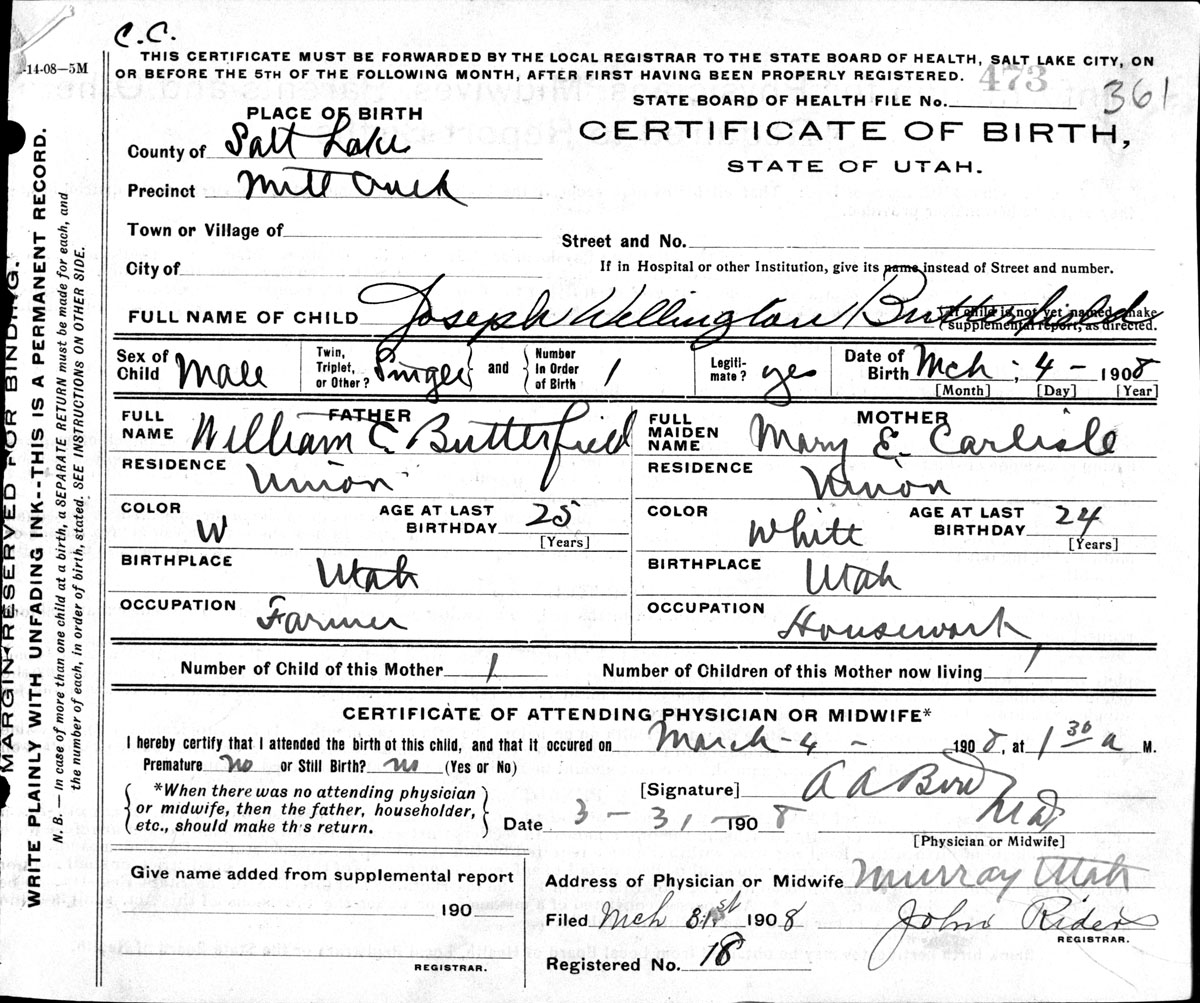 C.C.
-14-08—5M
THIS CERTIFICATE MUST BE FORWARDED BY THE LOCAL REGISTRAR TO THE STATE BOARD OF HEALTH, SALT LAKE CITY, ON
OR BEFORE THE 5TH OF THE FOLLOWING MONTH, AFTER FIRST HAVING BEEN PROPERLY REGISTERED.
473
STATE BOARD OF HEALTH FILE No. 361
PLACE OF BIRTH
CERTIFICATE OF BIRTH,
STATE OF UTAH.
County of Salt Lake
Precinct Mill Creek
Town or Village of
Street and No.
City of
If in Hospital or other Institution, give its name instead of Street and number.
FULL NAME OF CHILD Joseph Wellington Butterfield
If child is not yet named, make
supplemental report, as directed.
Sex of Child Male
Twin, Triplet, or Other? Single and Number In Order of Birth 1
Legiti-mate? yes
Date of Birth Mch. 4 - 1908
[Month] [Day] [Year]
FATHER
FULL NAME William C. Butterfield
RESIDENCE Union
COLOR W
AGE AT LAST BIRTHDAY 25
[Years]
BIRTHPLACE Utah
OCCUPATION Farmer
MOTHER
FULL MAIDEN NAME Mary E. Carlisle
RESIDENCE Union
COLOR White
AGE AT LAST BIRTHDAY 24
[Years]
BIRTHPLACE Utah
OCCUPATION Housework
Number of Child of this Mother 1
Number of Children of this Mother now living 1
CERTIFICATE OF ATTENDING PHYSICIAN OR MIDWIFE*
I hereby certify that I attended the birth of this child, and that it occured on March - 4 - 1908, at 1 30 a M.
Premature no or Still Birth? no (Yes or No)
*When there was no attending physician
or midwife, then the father, householder,
etc., should make th's return.
[Signature] A A Bird
MD
[Physician or Midwife]
Date 3 - 31 - 1908
Give name added from supplemental report
190
REGISTRAR.
Address of Physician or Midwife Murray Utah
Filed Mch 31st 1908
John Rider
REGISTRAR.
Registered No. 18
MARGIN RESERVED FOR BINDING.
WRITE PLAINLY WITH UNFADING INK--THIS IS A PERMANENT RECORD.
N. B. — In case of more than one child at a birth, a SEPARATE RETURN must be made for each, and
the number of each, in order of birth, stated. SEE INSTRUCTIONS ON OTHER SIDE.